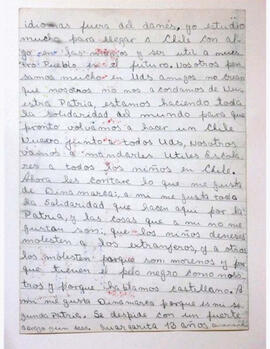 idiomas fuera del danés, yo estudio
mucho para llegar a Chile con al-
go en las manos y ser util a nues-
tro Pueblo en el futuro. Nosotros pen-
samos mucho en Uds amigos no crean
que nosotros no nos acordamos de Nu-
estra Patria, estamos haciendo toda
la solidaridad del mundo para que
pronto volvamos a hacer un Chile
Nuevo junto a todos Uds, Nosotros
vamos a mandarles Utiles Escola-
res a todos los niños en Chile.
Ahora les contare lo que me gusta
de Dinamarca; a mi me gusta toda
la Solidaridad que hacen aqui por la
Patria, y las cosas que a mi no me
gustan son; que los niños daneses
molesten a los extranjeros, y a otros
los molestan porque son morenos y por
que tienen el pelo negro como noso-
tros y porque hablamos castellano. A
mi me gusta Dinamarca porque es mi se-
gunda Patria. Se despide con un fuerte
abrazo Margarita 13 años